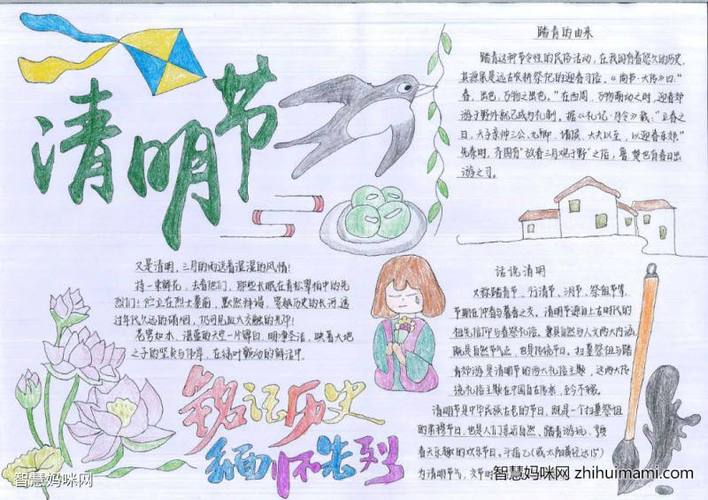 清明节
踏青的由来
踏青这种节令性的民俗活动，在我国有着悠久的历史，
其源泉是远古农耕祭祀的迎春习俗。《尚书·大传》曰："
春，出也，万物之出也。"在西周，万物萌动之时，迎春郊
游于野外就已成为礼制。据《礼记·月令》载："立春之
日，天子亲帅三公、九卿、诸侯、大夫以至，以迎春东郊。"
先秦时，齐国有"放春三月观于野"之俗，鲁、楚也有春日出
游之习。
又是清明，三月的雨送着湿湿的风情！
持一束鲜花，去看他们，那些长眠在青松翠柏中的先
烈们！伫立在烈士墓前，默然祥祷，穿越历史的长河，透
过年代久远的硝烟，仍可见血火交融的光印！
名誉如水，温蛋的大空一片鲜白，明净圣洁，映着大地
之子的坚贞与伟岸，在绿叶颤动的鲜活中。
话说清明
又称踏青节、行清节、三月节、祭祖节等，
节期在仲春与暮春之交。清明节源自上古时代的
祖先信仰与春祭礼俗，兼具自然与人文两大内涵，
既是自然节气点，也是传统节日，扫墓祭祖与踏
青郊游是清明节的两大礼俗主题，这两大传
统礼俗主题在中国自古传承，至今不辍。
清明节是中华民族古老的节日，既是一个扫墓祭祖
的肃穆节日，也是人们亲近自然、踏青游玩、享受
春天乐趣的欢乐节日。斗指乙(或太阳黄经达15°)
为清明节气，交节时
铭记历史
缅怀先烈
智慧妈咪网
智慧妈咪网 zhihuimami.com